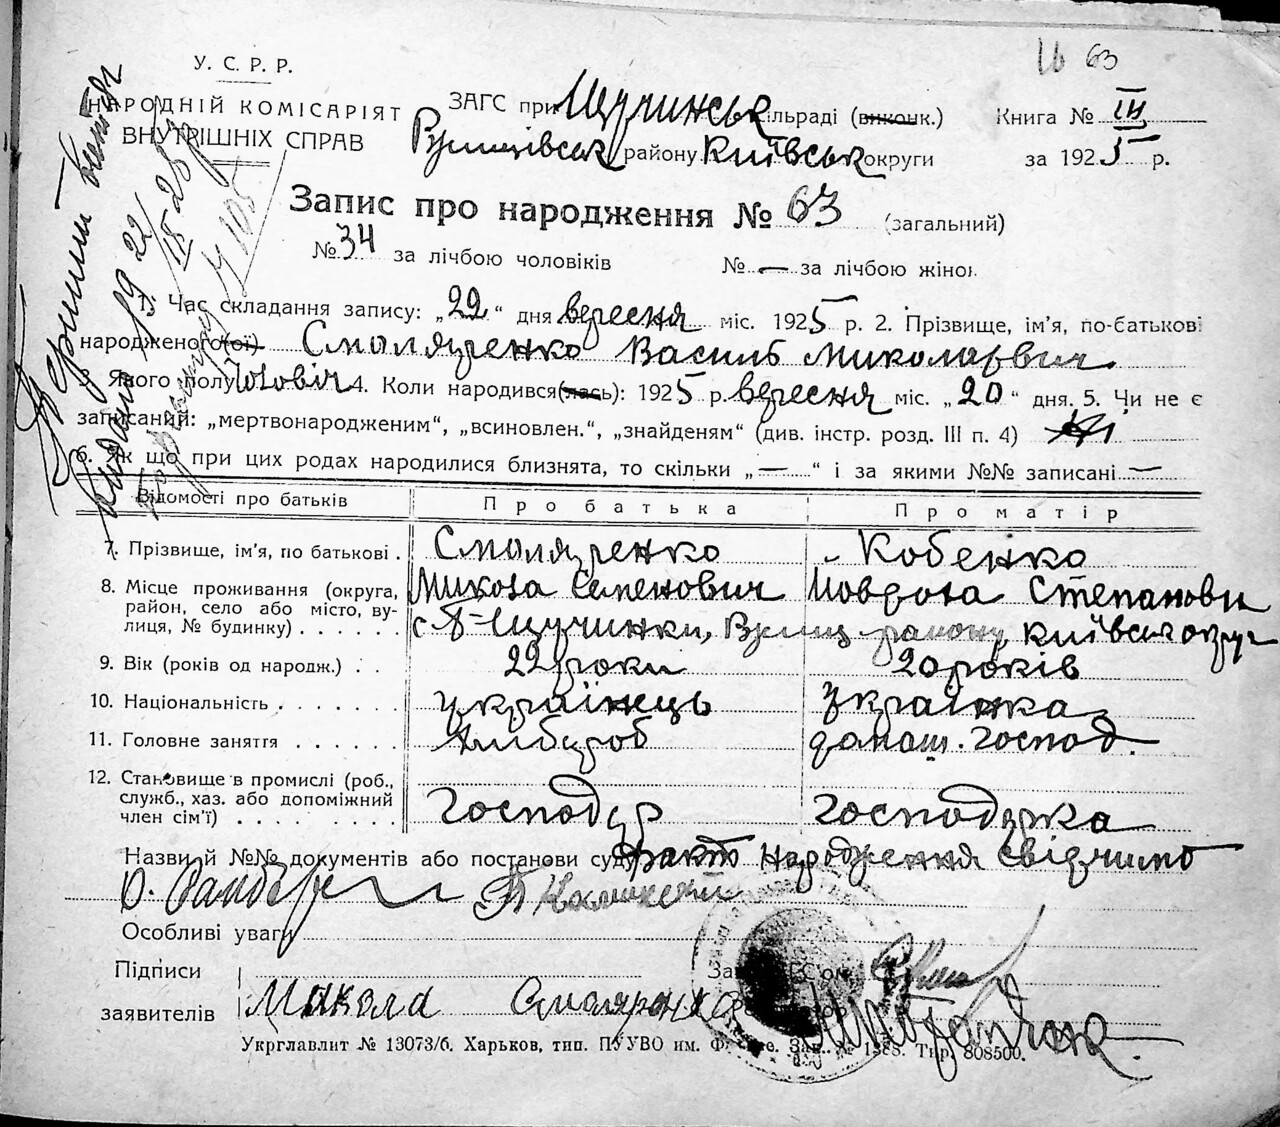 И 63
У. С. Р. Р.
НАРОДНІЙ КОМІСАРІЯТ
ВНУТРІШНІХ СПРАВ
ЗАГС при Щучинськ сільраді (виконк.) Книга № III
району Київськ округи за 1925 р.
Запис про народження № 63 (загальний)
№ 34 за лічбою чоловіків № — за лічбою жінок
1. Час складання запису: „22“ дня вересня міс. 1925 р. 2. Прізвище, ім'я, по-батькові
народженого(ої) Смоляренко Василь Миколаевич
3. Якого полу чоловіч 4. Коли народився(лась): 1925 р. вересня міс. „20“ дня. 5. Чи не є
записаний: „мертвонародженим“, „всиновлен.“, „знайденям“ (див. інстр. розд. III п. 4) Ні
6. Як що при цих родах народилися близнята, то скільки „—“ і за якими №№ записані —
Відомості про батьків Про батька Про матір
7. Прізвище, ім'я, по батькові . Смоляренко Кобенко
8. Місце проживання (округа, Микола Семенович Степанови
район, село або місто, ву-
лиця, № будинку) . . . . . . с Щучинки, району, Київськ округ
9. Вік (років од народж.) . . 22 роки 20 років
10. Національність . . . . . . . українець українка
11. Головне заняття . . . . . . Хлібороб домаш. господ.
12. Становище в промислі (роб.,
служб., хаз. або допоміжний господар господарка
член сім'ї) . . . . . . . .
Назви й №№ документів або постанови суду факт народження свідчимо
Особливі уваги
Підписи
заявителів Микола Смоляренко
Укрглавлит № 13073/б. Харьков, тип. ПУУВО им. Фрунзе. Зак. № 1388. Тир. 808500.